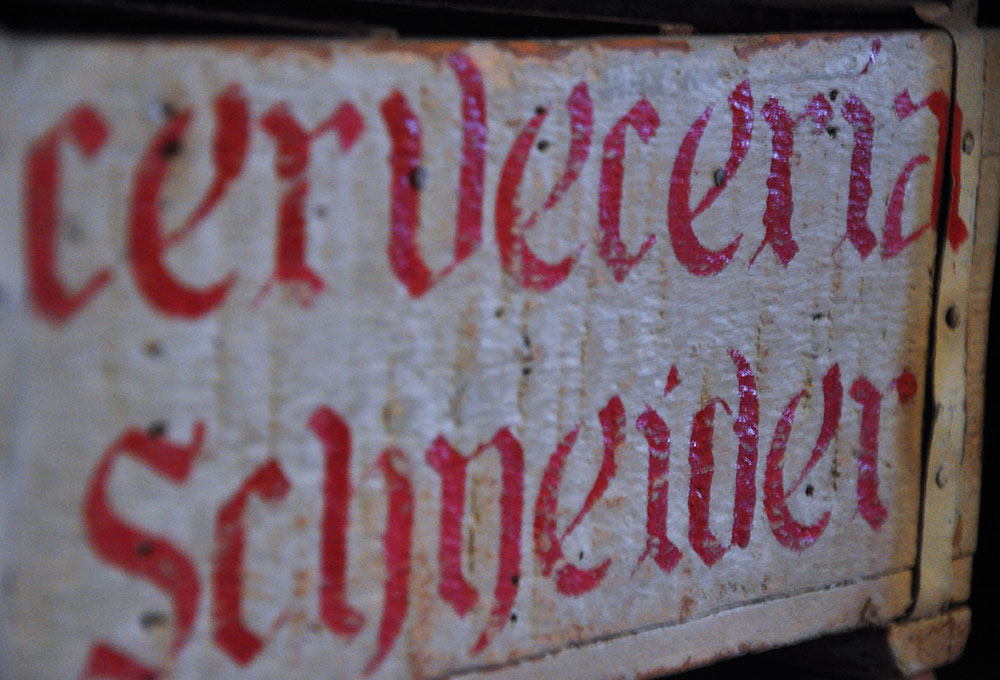 cervecería
Schneider